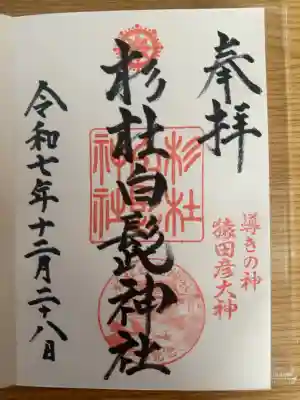 奉拝
導きの神
猿田彦大神
杉杜白髭神社
令和七年十二月二十八日